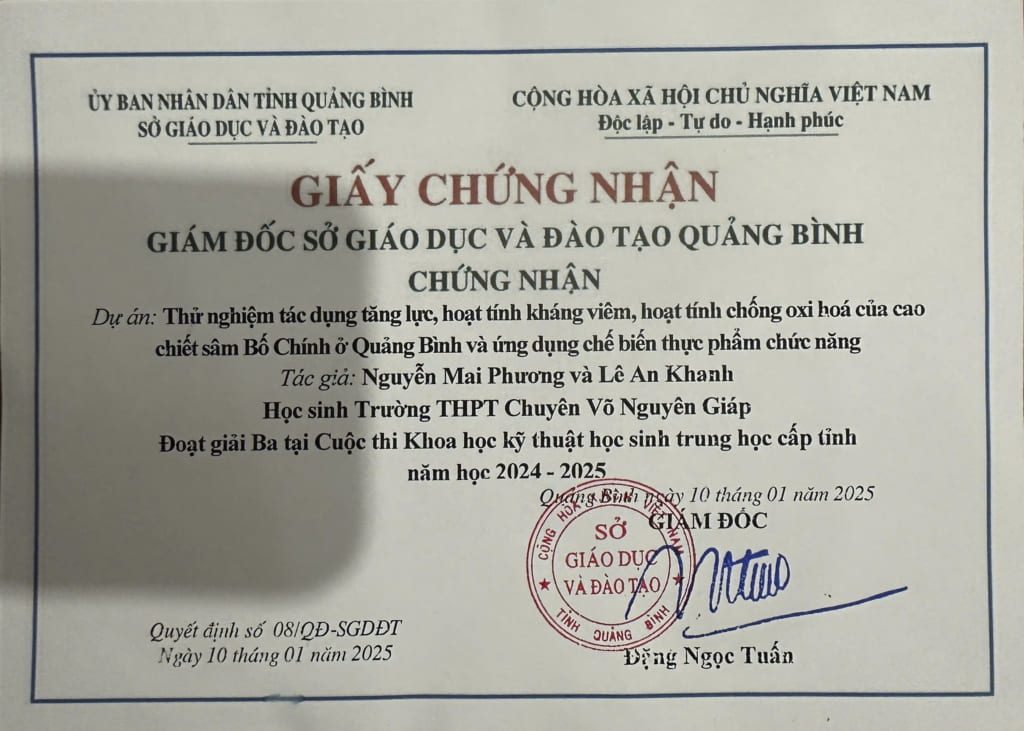 ỦY BAN NHÂN DÂN TỈNH QUẢNG BÌNH
SỞ GIÁO DỤC VÀ ĐÀO TẠO
CỘNG HÒA XÃ HỘI CHỦ NGHĨA VIỆT NAM
Độc lập - Tự do - Hạnh phúc
GIẤY CHỨNG NHẬN
GIÁM ĐỐC SỞ GIÁO DỤC VÀ ĐÀO TẠO QUẢNG BÌNH
CHỨNG NHẬN
Dự án: Thử nghiệm tác dụng tăng lực, hoạt tính kháng viêm, hoạt tính chống oxi hoá của cao
chiết sâm Bố Chính ở Quảng Bình và ứng dụng chế biến thực phẩm chức năng
Tác giả: Nguyễn Mai Phương và Lê An Khanh
Học sinh Trường THPT Chuyên Võ Nguyên Giáp
Đoạt giải Ba tại Cuộc thi Khoa học kỹ thuật học sinh trung học cấp tỉnh
năm học 2024 - 2025
Quảng Bình ngày 10 tháng 01 năm 2025
GIÁM ĐỐC
CỘNG HÒA X.H.C.N VIỆT NAM
SỞ
GIÁO DỤC
VÀ ĐÀO TẠO
TỈNH QUẢNG BÌNH
Đặng Ngọc Tuấn
Quyết định số 08/QĐ-SGDĐT
Ngày 10 tháng 01 năm 2025